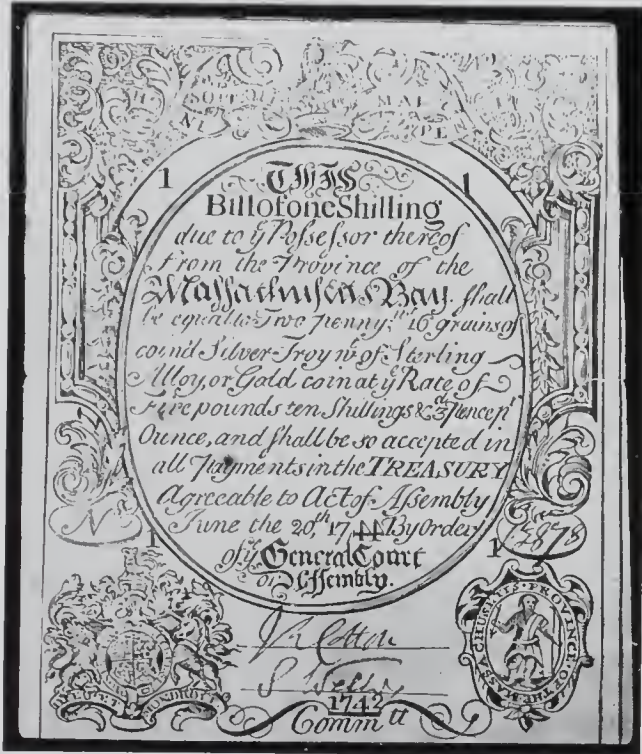 1 1
THIS
Bill of one Shilling
due to yͤ Possessor thereof
from the Province of the
Massachusetts Bay. shall
be equal to Two penny: wᵗ 16 grains of
coin'd Silver Troy wᵗ of Sterling
Alloy, or Gold coin at yͤ Rate of
Five pounds ten Shillings & 3ᵈ pence pʳ
Ounce, and shall be so accepted in
all Payments in the TREASURY
Agreeable to Act of Assembly
June the 20,ᵗʰ 1744 By Order
of yͤ General Court
or Assembly.
N 1 1
J R Cotton
DIEU ET MON DROIT
MASSACHUSETTS PROVINCE OF THE
S Welles
1742
Commᵗᵗ